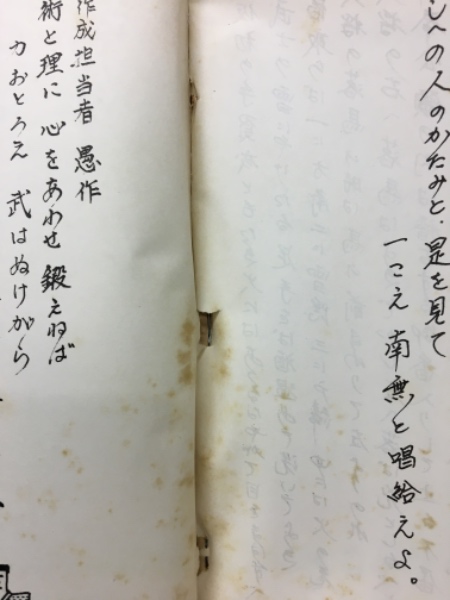 しへの人のかたみと、是を見て
一こえ南無と唱給えよ。
作成担当者 愚作
術と理に 心をあわせ 鍛えねば
力おとろえ 武はぬけがら